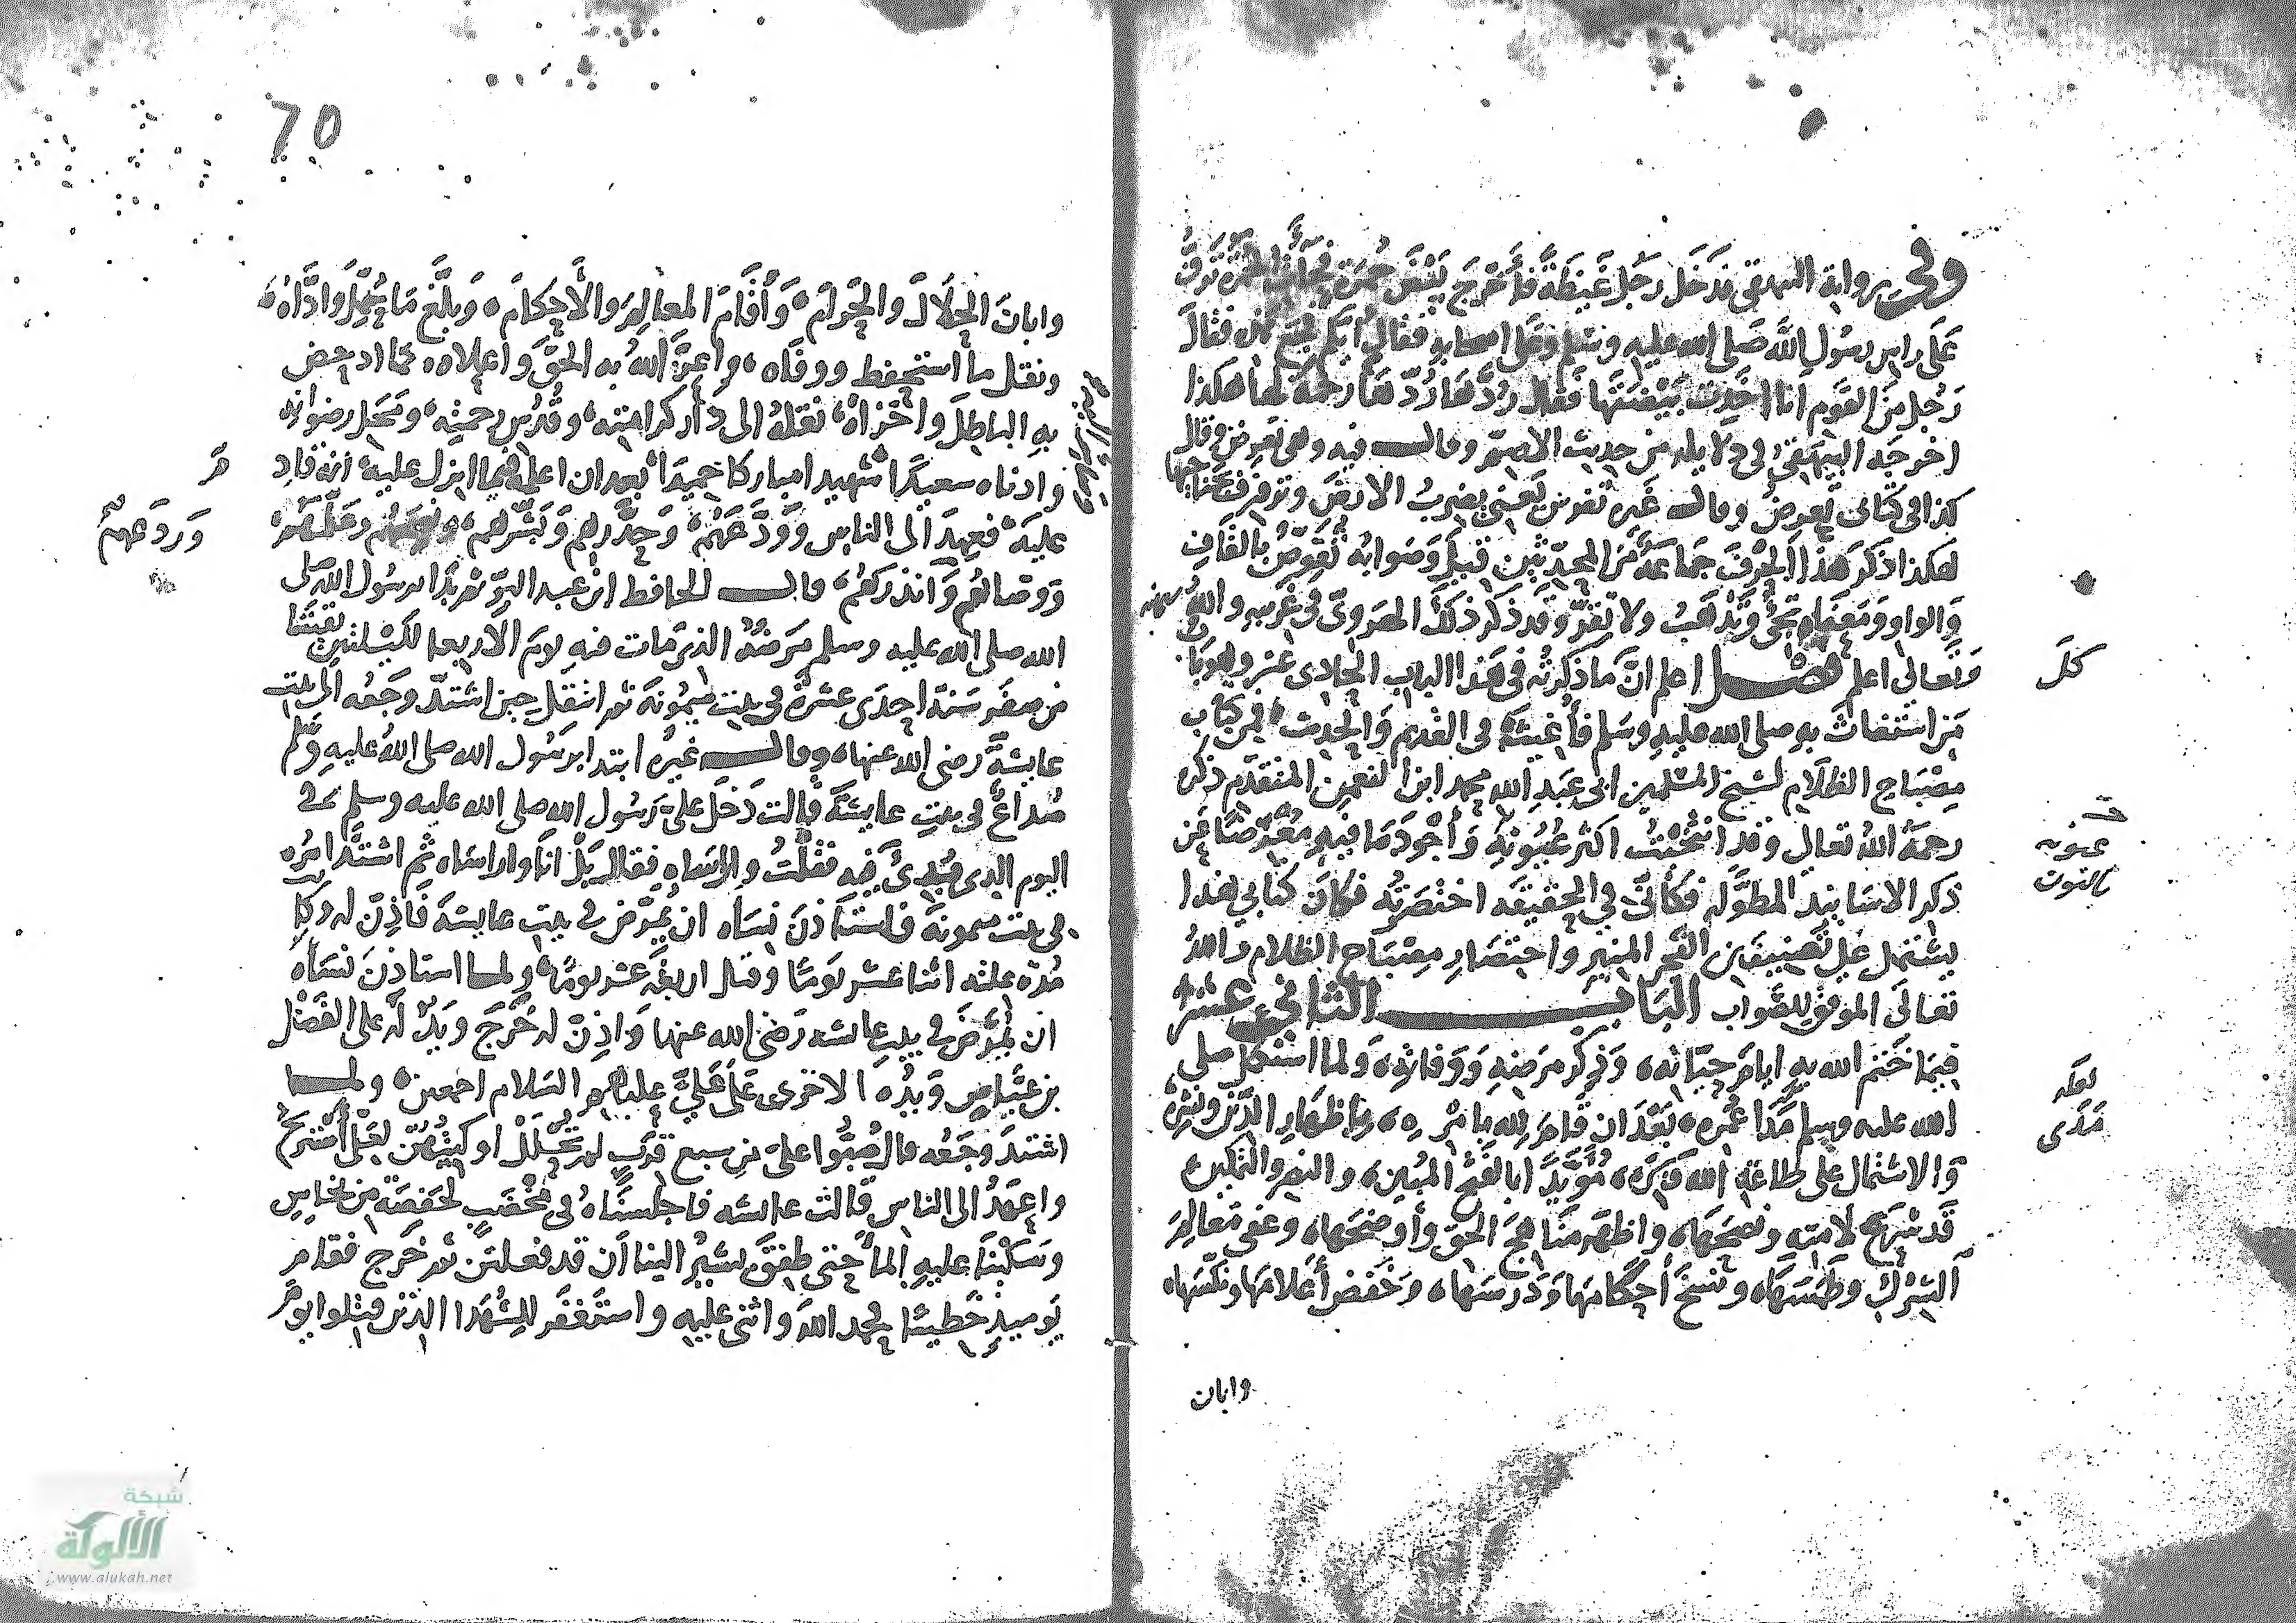 وفي رواية البيهقي فدخل رجل غيضة فأخرج بيض حمرة فجات الحمرة ترف
على راس رسول الله صلى الله عليه وسلم وعلى اصحابه فقال ايكم فجع هذه فقال
رجل من القوم انا اخذت بيضتها فقال ردها ردها رحمة لها هكذا
اخرجه البيهقي في دلايله من حديث الاصم وقال فيه وهي تعرض وقال
كذا في كتابي تعرض وقال غيره تفرش يعني بقرب الارض وترفرف بجناحيها
هكذا ذكر هذا الحرف جماعة من المحدثين قبلي وصوابه تعوض بالقاف
والواو ومعناه تجي وتذهب ولا تقر وقد ذكر ذلك الهروي في غريبه والله سبحنه
وتعالى اعلم فصل اعلم ان ما ذكرته في هذا الباب الحادي عشر وهو باب
من استغاث به صلى الله عليه وسلم فأغيث في القديم والحديث من كتاب
مصباح الظلام لشيخ المسلمين ابي عبد الله محمد ابن النعمن المتقدم ذكره
رحمه الله تعالى وقد انتخبت اكثر عيونه وأجود ما فيه معرضا عن
ذكر الاسانيد المطوله فكأني في الحقيقه اختصرته فكان كتابي هذا
يشتمل على تصنيفين الفجر المنير واختصار مصباح الظلام والله
تعالى الموفق للصواب الباب الثاني عشر
فيما ختم الله به ايام حياته وذكر مرضه ووفاته ولما استكمل صلى
الله عليه وسلم مدا عمره بعد ان قام لله بامره واظهار الدين ونشره
والاشتمال على طاعة الله وبره مؤيدا بالفتح المبين والنصر والتمكين
قد شرع لامته ونصحها واظهر مناهج الحق وأوضحها وعفى معالم
الشرك وطمسها ونسخ أحكامها ودرسها وخفض أعلامها ونكسها
وابان
كل
عيونه
بالنون
لعله
مدى
70
وابان الحلال والحرام وأقام المعالم والأحكام وبلغ ما حمل واداه
ونقل ما استحفظ ووفاه واعز الله به الحق واعلاه كما ادحض
به الباطل واخزاه نقله الى دار كرامته وقدس رحمته ومحل رضوانه
وادناه سعيدا شهيدا مباركا حميدا بعد ان اعلمه فيما انزل عليه انه قادم
عليه فعهد الى الناس وودعهم وحذرهم وبشرهم وعلمهم
ووصاهم وانذرهم قال الحافظ ابن عبد البر ثم بدا برسول الله صلى
الله صلى الله عليه وسلم مرضه الذي مات فيه يوم الأربعا لليلتين بقيتا
من صفر سنة احدى عشرة في بيت ميمونة ثم انتقل حين اشتد وجعه الى بيت
عايشة رضي الله عنها وقال غيره ابتدا برسول الله صلى الله عليه وسلم
صداع في بيت عايشة قالت دخل علي رسول الله صلى الله عليه وسلم في
اليوم الذي بدئ فيه فقلت وا راساه فقال بل أنا وا راساه ثم اشتد امره
في بيت ميمونة فاستأذن نساه ان يمرض في بيت عايشة فأذن له وكانت
مدة علته اثنا عشر يوما وقيل اربعة عشر يوما ولما استاذن نساه
ان يمرض في بيت عائشه رضي الله عنها واذن له خرج ويد له على الفضل
بن عباس ويده الاخرى على علي عليهم السلام اجمعين ولما
اشتد وجعه قال صبوا علي من سبع قرب لم تحلل اوكيتهن لعلي أستريح
واعهد الى الناس قالت عائشه فاجلسناه في مخضب لحفصة من نحاس
وسكبنا عليه الما حتى طفق يشير الينا ان قد فعلتن ثم خرج فقام
يوميذ خطيبا فحمد الله واثنى عليه واستغفر للشهدا الذين قتلوا يوم
وردعهم
شبكة
الألوكة
www.alukah.net